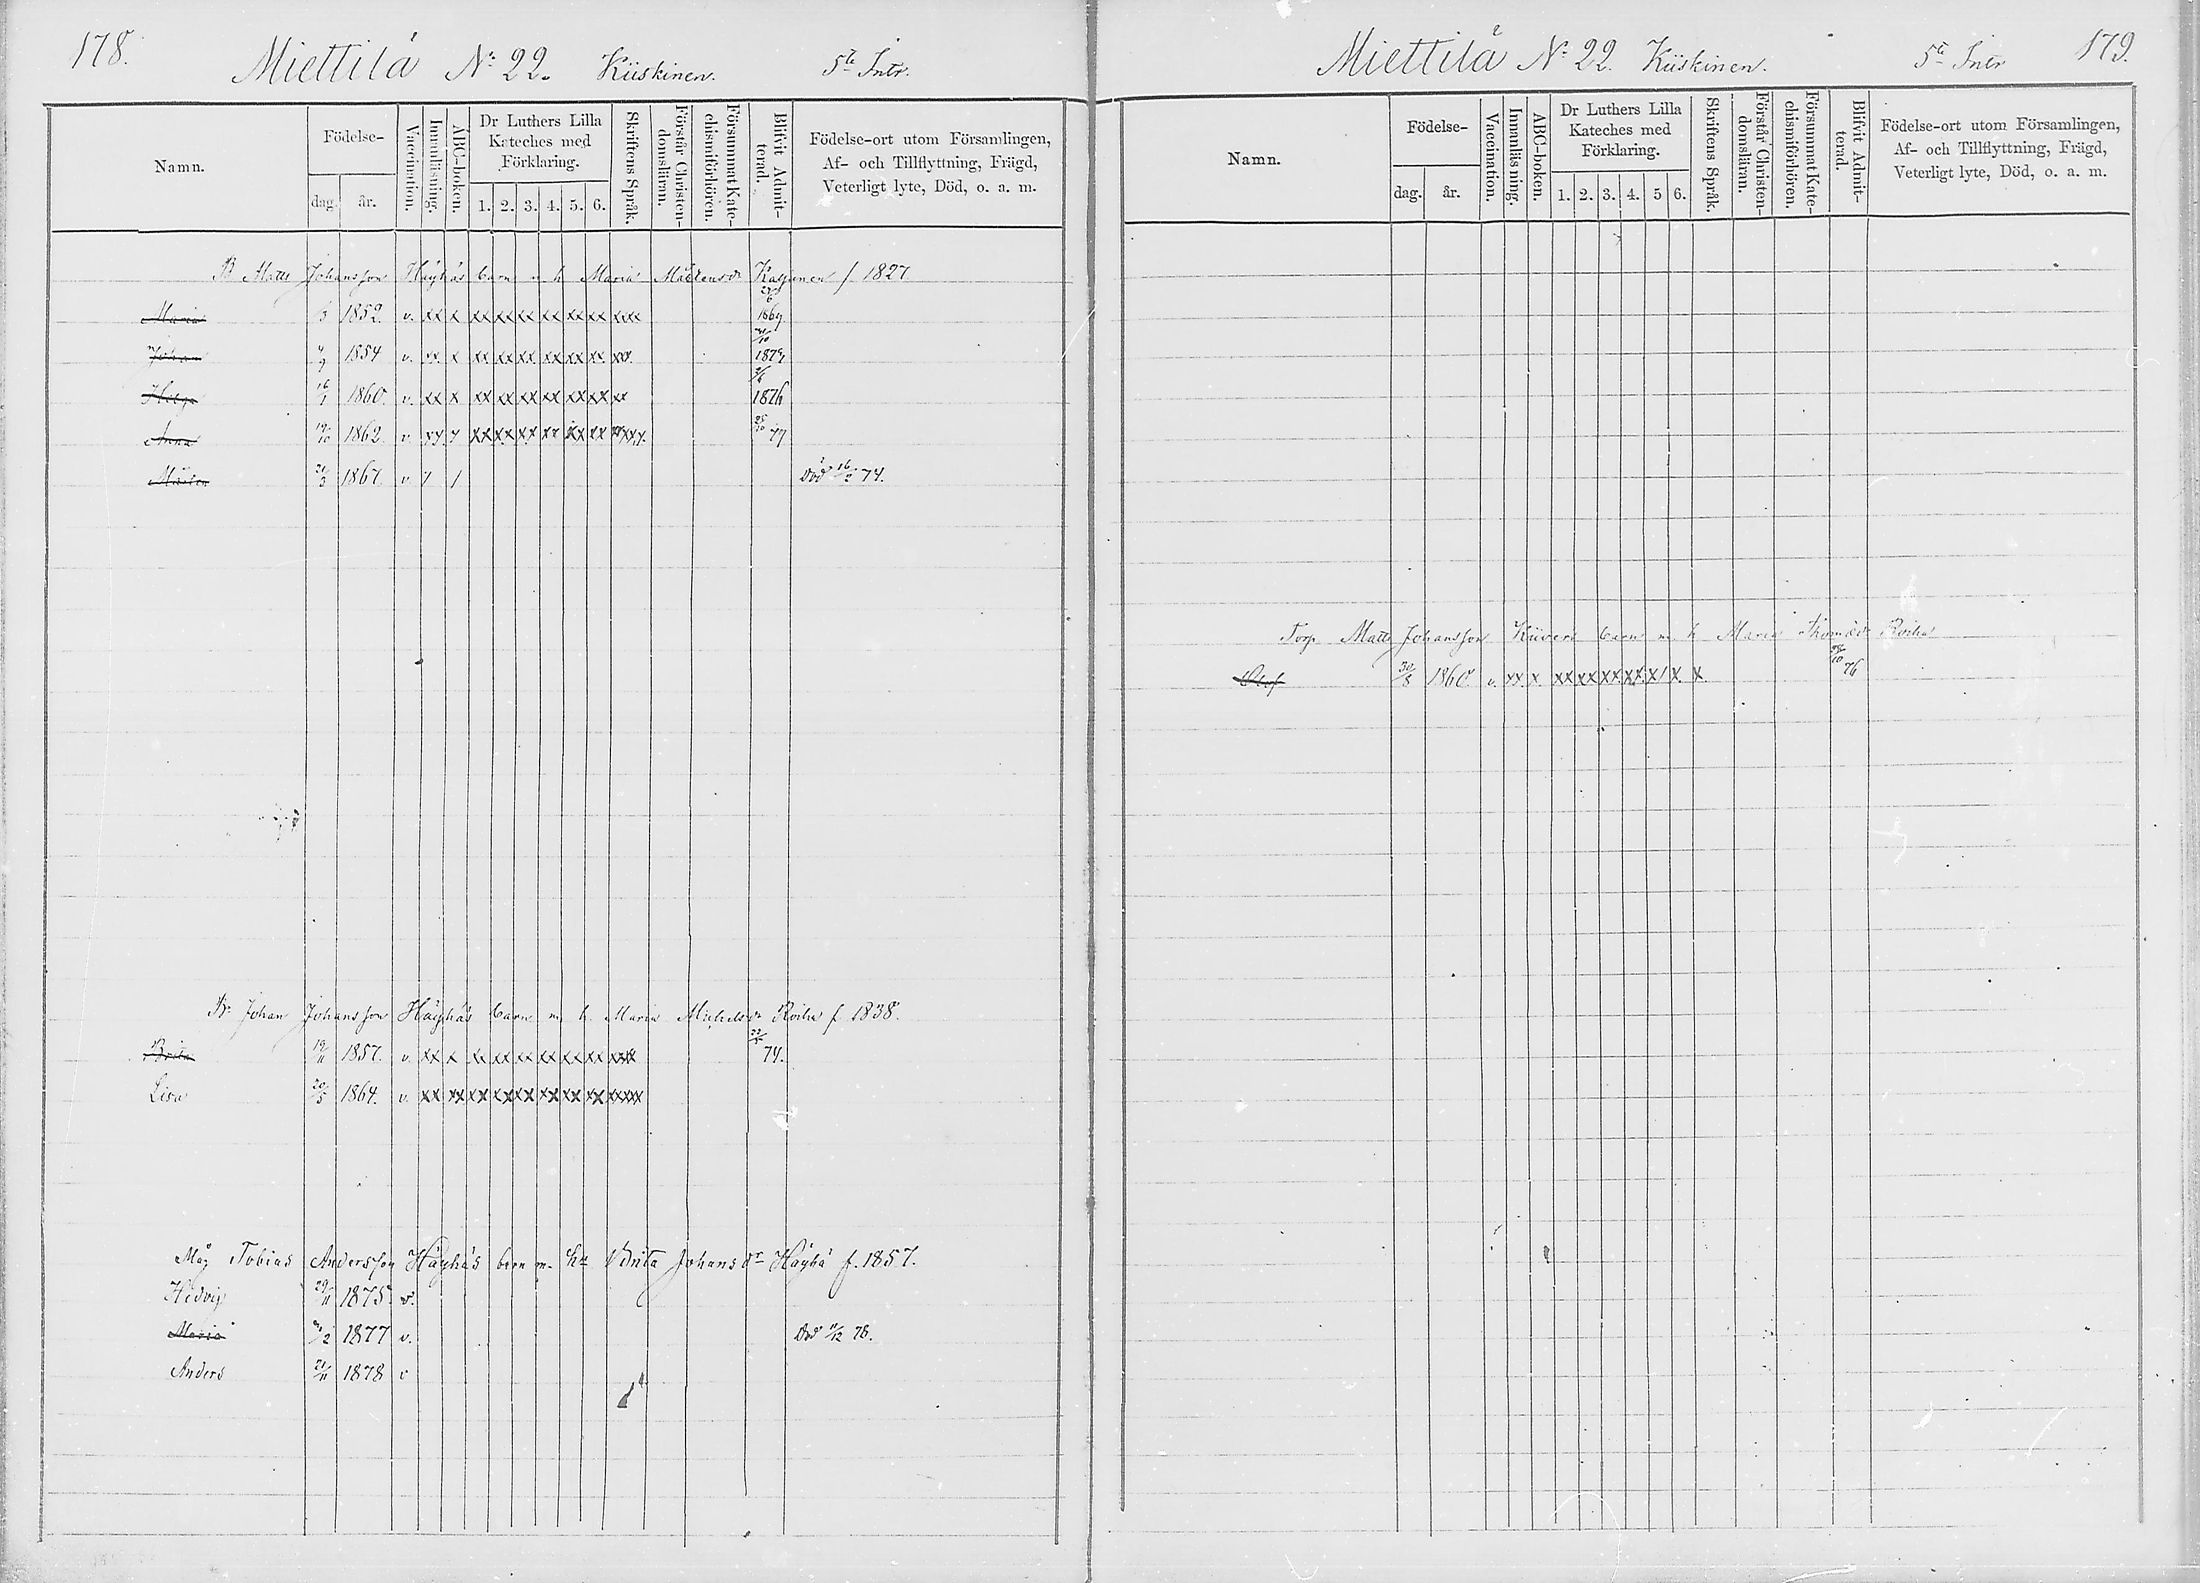 178.
Miettilä No 22. Kiiskinen. 5te Intr.
Namn. Födelse- dag. år. Vaccination. Innanläsning. ABC-boken. Dr Luthers Lilla Kateches med Förklaring. 1. 2. 3. 4. 5. 6. Skriftens Språk. Förstår Christendomsläran. Försummat Katechismiförhören. Blifvit Admitterad. Födelse-ort utom Församlingen, Af- och Tillflyttning, Frägd, Veterligt lyte, Död, o. a. m.
B Matts Johansson Häyhäs barn m h Maria Mårtensdr f. 1827
Maria 1852. v. xx x xx xx xx xx xx xx xxxx 1869.
Johan 1854 v. xx x xx xx xx xx xx xx
Helga 16/1 1860. v. xx x xx xx xx xx xx xx xx 1876
Anna 1862 v. xx x xx xx xx xx xx xx 25/10 77
Mårten 21/3 1867. v / / Död 16/2 74.
Br Johan Johansson Häyhäs barn m h. Maria Michelsdr Roiha f. 1838.
Brita 19/11 1857. v. xx x xx xx xx xx xx xx xxxx 74.
Lisa 20/5 1864. v. xx xx xx xx xx xx xx xx xxxxx
Måg Tobias Andersson Häyhäs barn m. Brita Johansdr Häyhä f. 1857.
Hedvig 29/11 1875 v.
Maria 1877 v. Död 11/12 78.
Anders 21/11 1878 v
Miettilä No 22. Kiiskinen. 5te Intr 179.
Namn. Födelse- dag. år. Vaccination. Innanläsning. ABC-boken. Dr Luthers Lilla Kateches med Förklaring. 1. 2. 3. 4. 5 6. Skriftens Språk. Förstår Christendomsläran. Försummat Katechismiförhören. Blifvit Admitterad. Födelse-ort utom Församlingen, Af- och Tillflyttning, Frägd, Veterligt lyte, Död, o. a. m.
Torp Matts Johansson Kiiveri barn m h Maria Thomædr Roiha
Olof 30/8 1860 v. xx x xx xx xx xx x/ x x 76